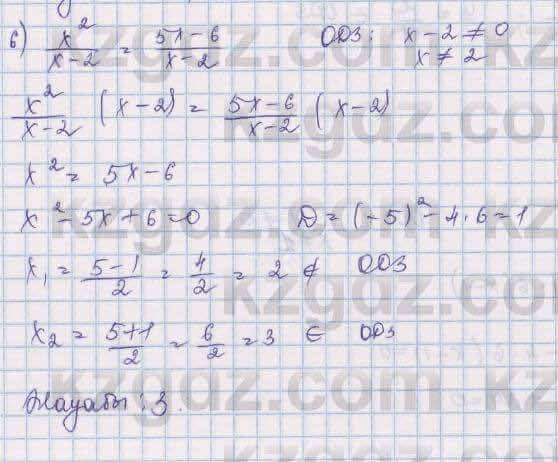 6) x²/(x-2) = (5x-6)/(x-2) ОДЗ: x-2≠0
x≠2
x²/(x-2) (x-2) = (5x-6)/(x-2) (x-2)
x² = 5x-6
x²-5x+6=0 D=(-5)²-4·6=1
x₁ = (5-1)/2 = 4/2 = 2 ∉ ОДЗ
x₂ = (5+1)/2 = 6/2 = 3 ∈ ОДЗ
Жауабы: 3.
kzgdz.com